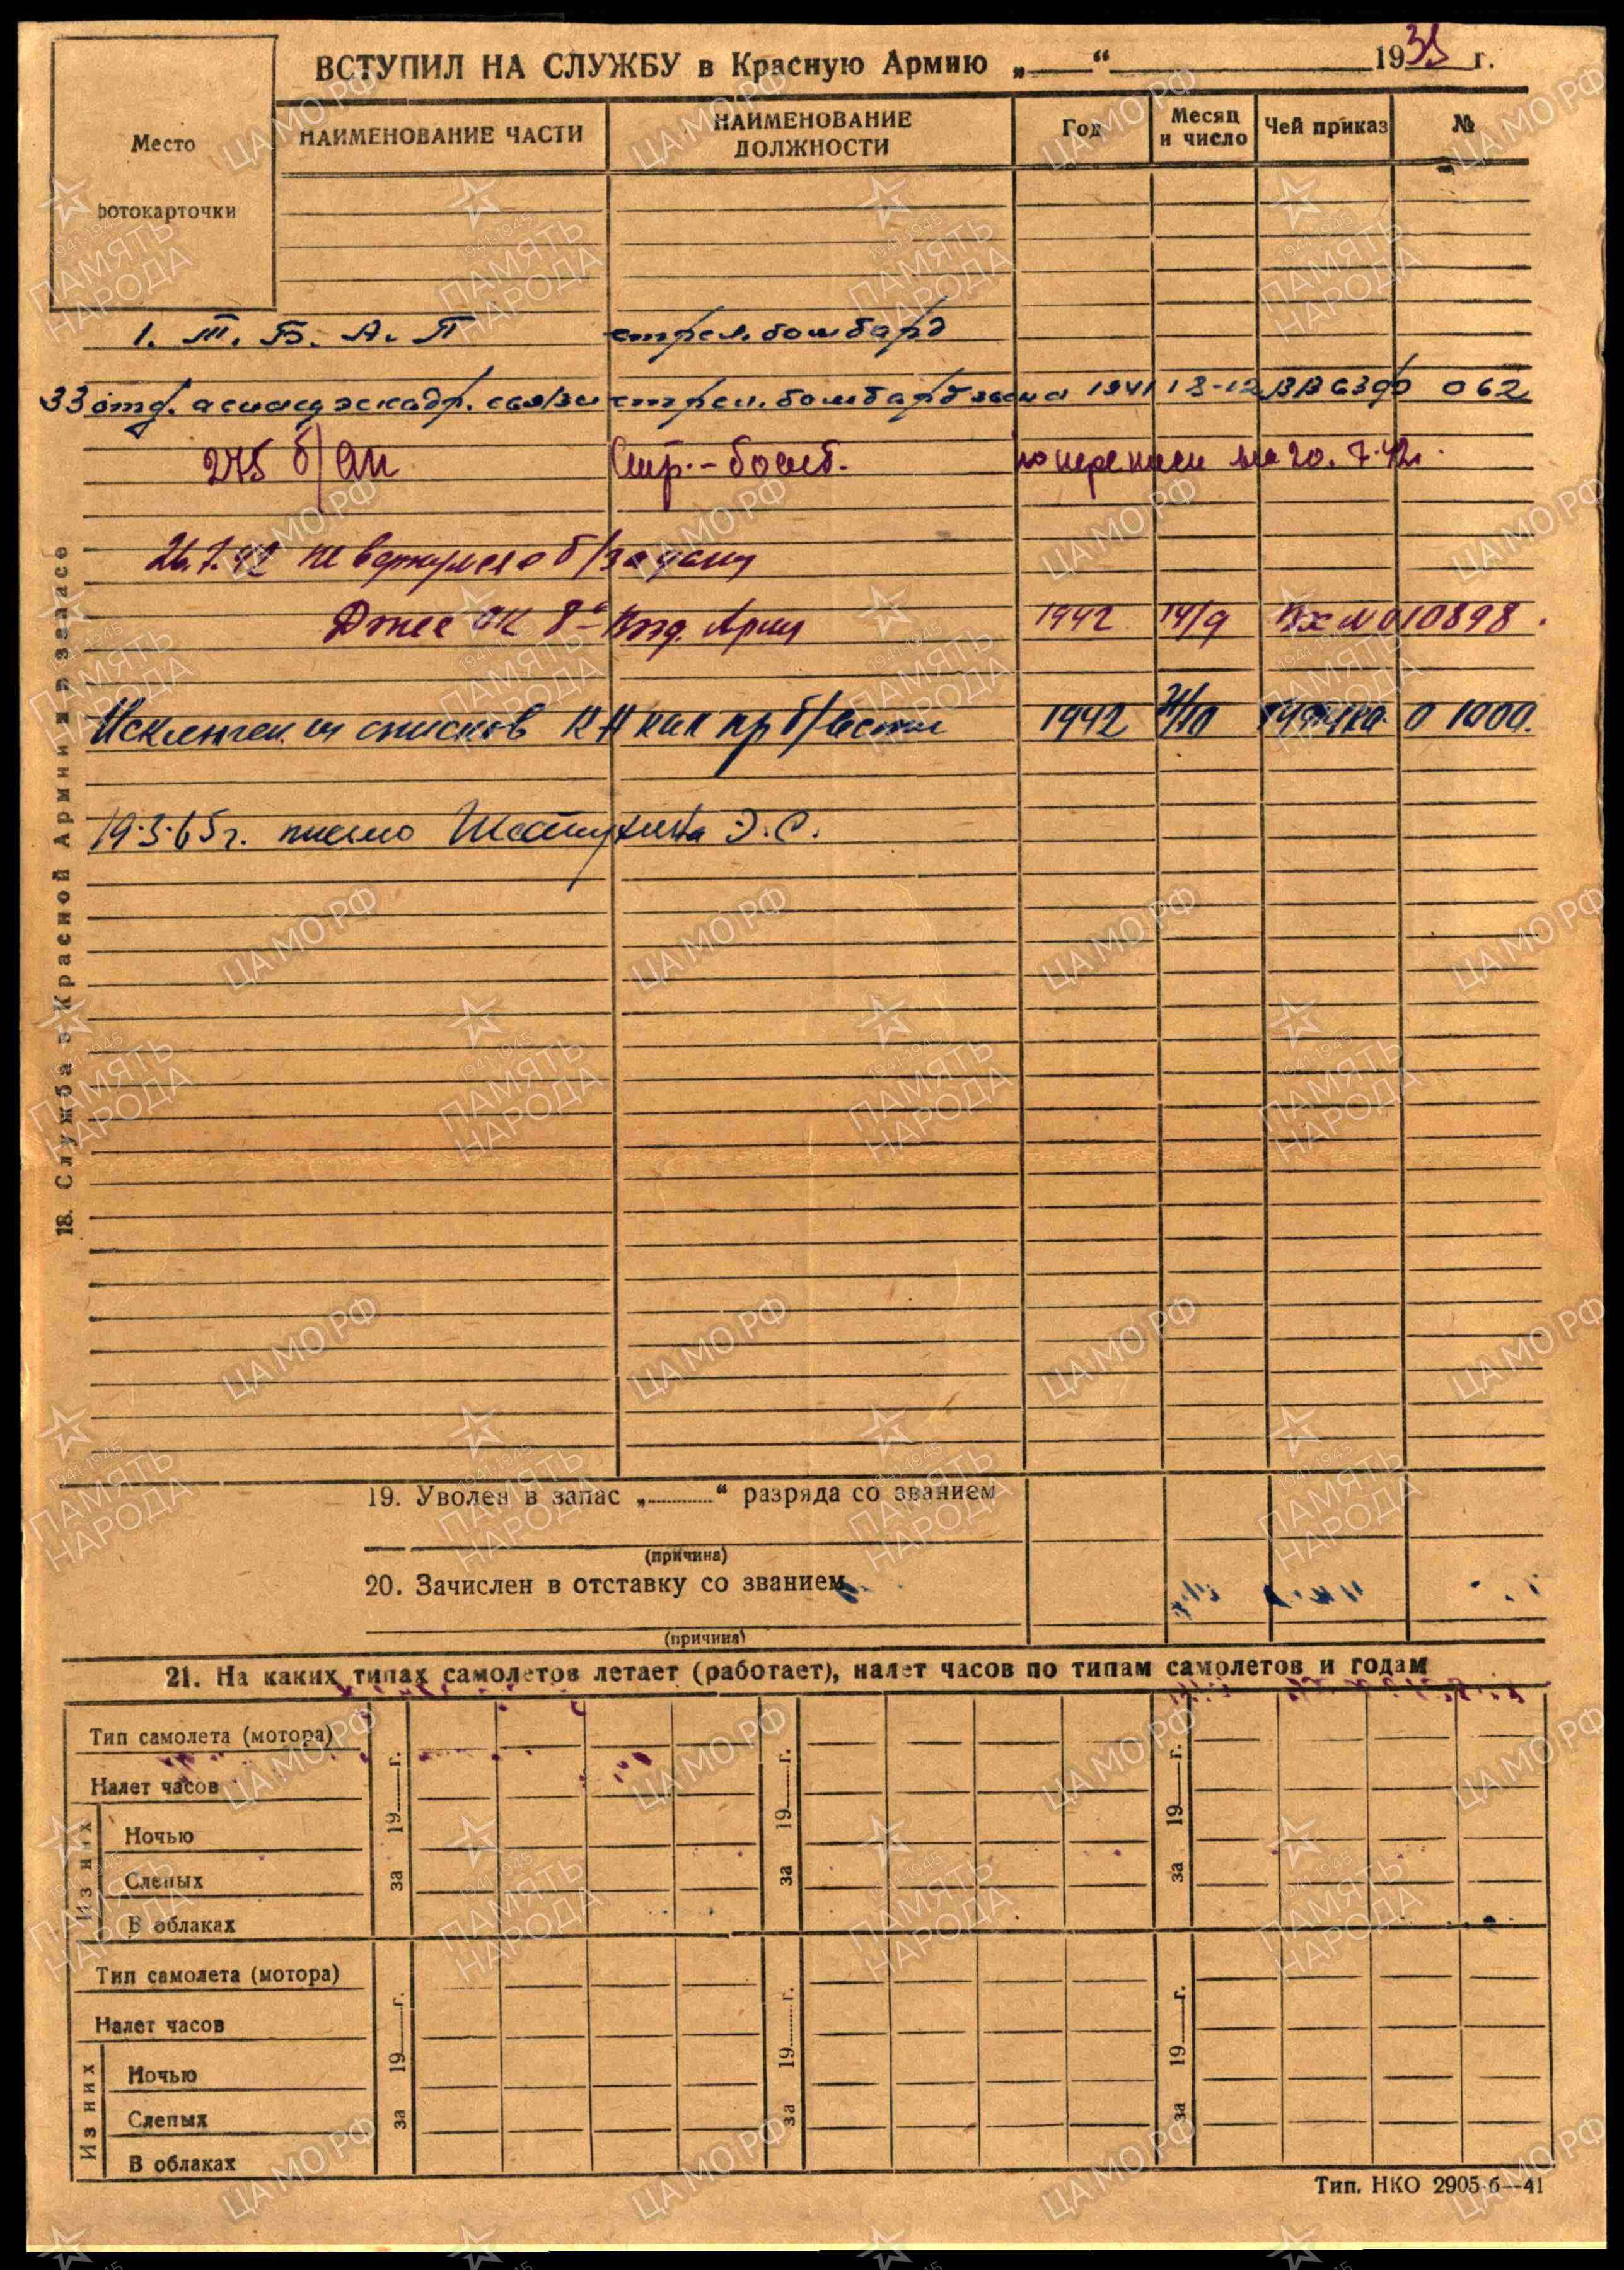 ВСТУПИЛ НА СЛУЖБУ в Красную Армию „ “ 1938 г.
Место
фотокарточки
НАИМЕНОВАНИЕ ЧАСТИ НАИМЕНОВАНИЕ ДОЛЖНОСТИ Год Месяц и число Чей приказ №
1. Т. Б. А. П стрел. бомбард
33 отд. авиац эскадр. связи стрел. бомбард звена 1941 13-12 ВВС 062
275 б/ап Стр.-бомб. по переписи на 20.7.42г.
26.7.42 не вернулся с б/задания
Д-ние ОК 8-й Возд. Армии 1942 14/9 Вх № 010898.
Исключен из списков КА как пр б/вести 1942 0 1000.
19.3.65г. письмо Э.С.
18. Служба в Красной Армии и в запасе
19. Уволен в запас „ “ разряда со званием
(причина)
20. Зачислен в отставку со званием
(причина)
21. На каких типах самолетов летает (работает), налет часов по типам самолетов и годам
Тип самолета (мотора)
Налет часов
Из них
Ночью
Слепых
В облаках
за 19 г. за 19 г. за 19 г.
Тип самолета (мотора)
Налет часов
Из них
Ночью
Слепых
В облаках
за 19 г. за 19 г. за 19 г.
Тип. НКО 2905-б—41
ЦАМО РФ
1941-1945
ПАМЯТЬ
НАРОДА